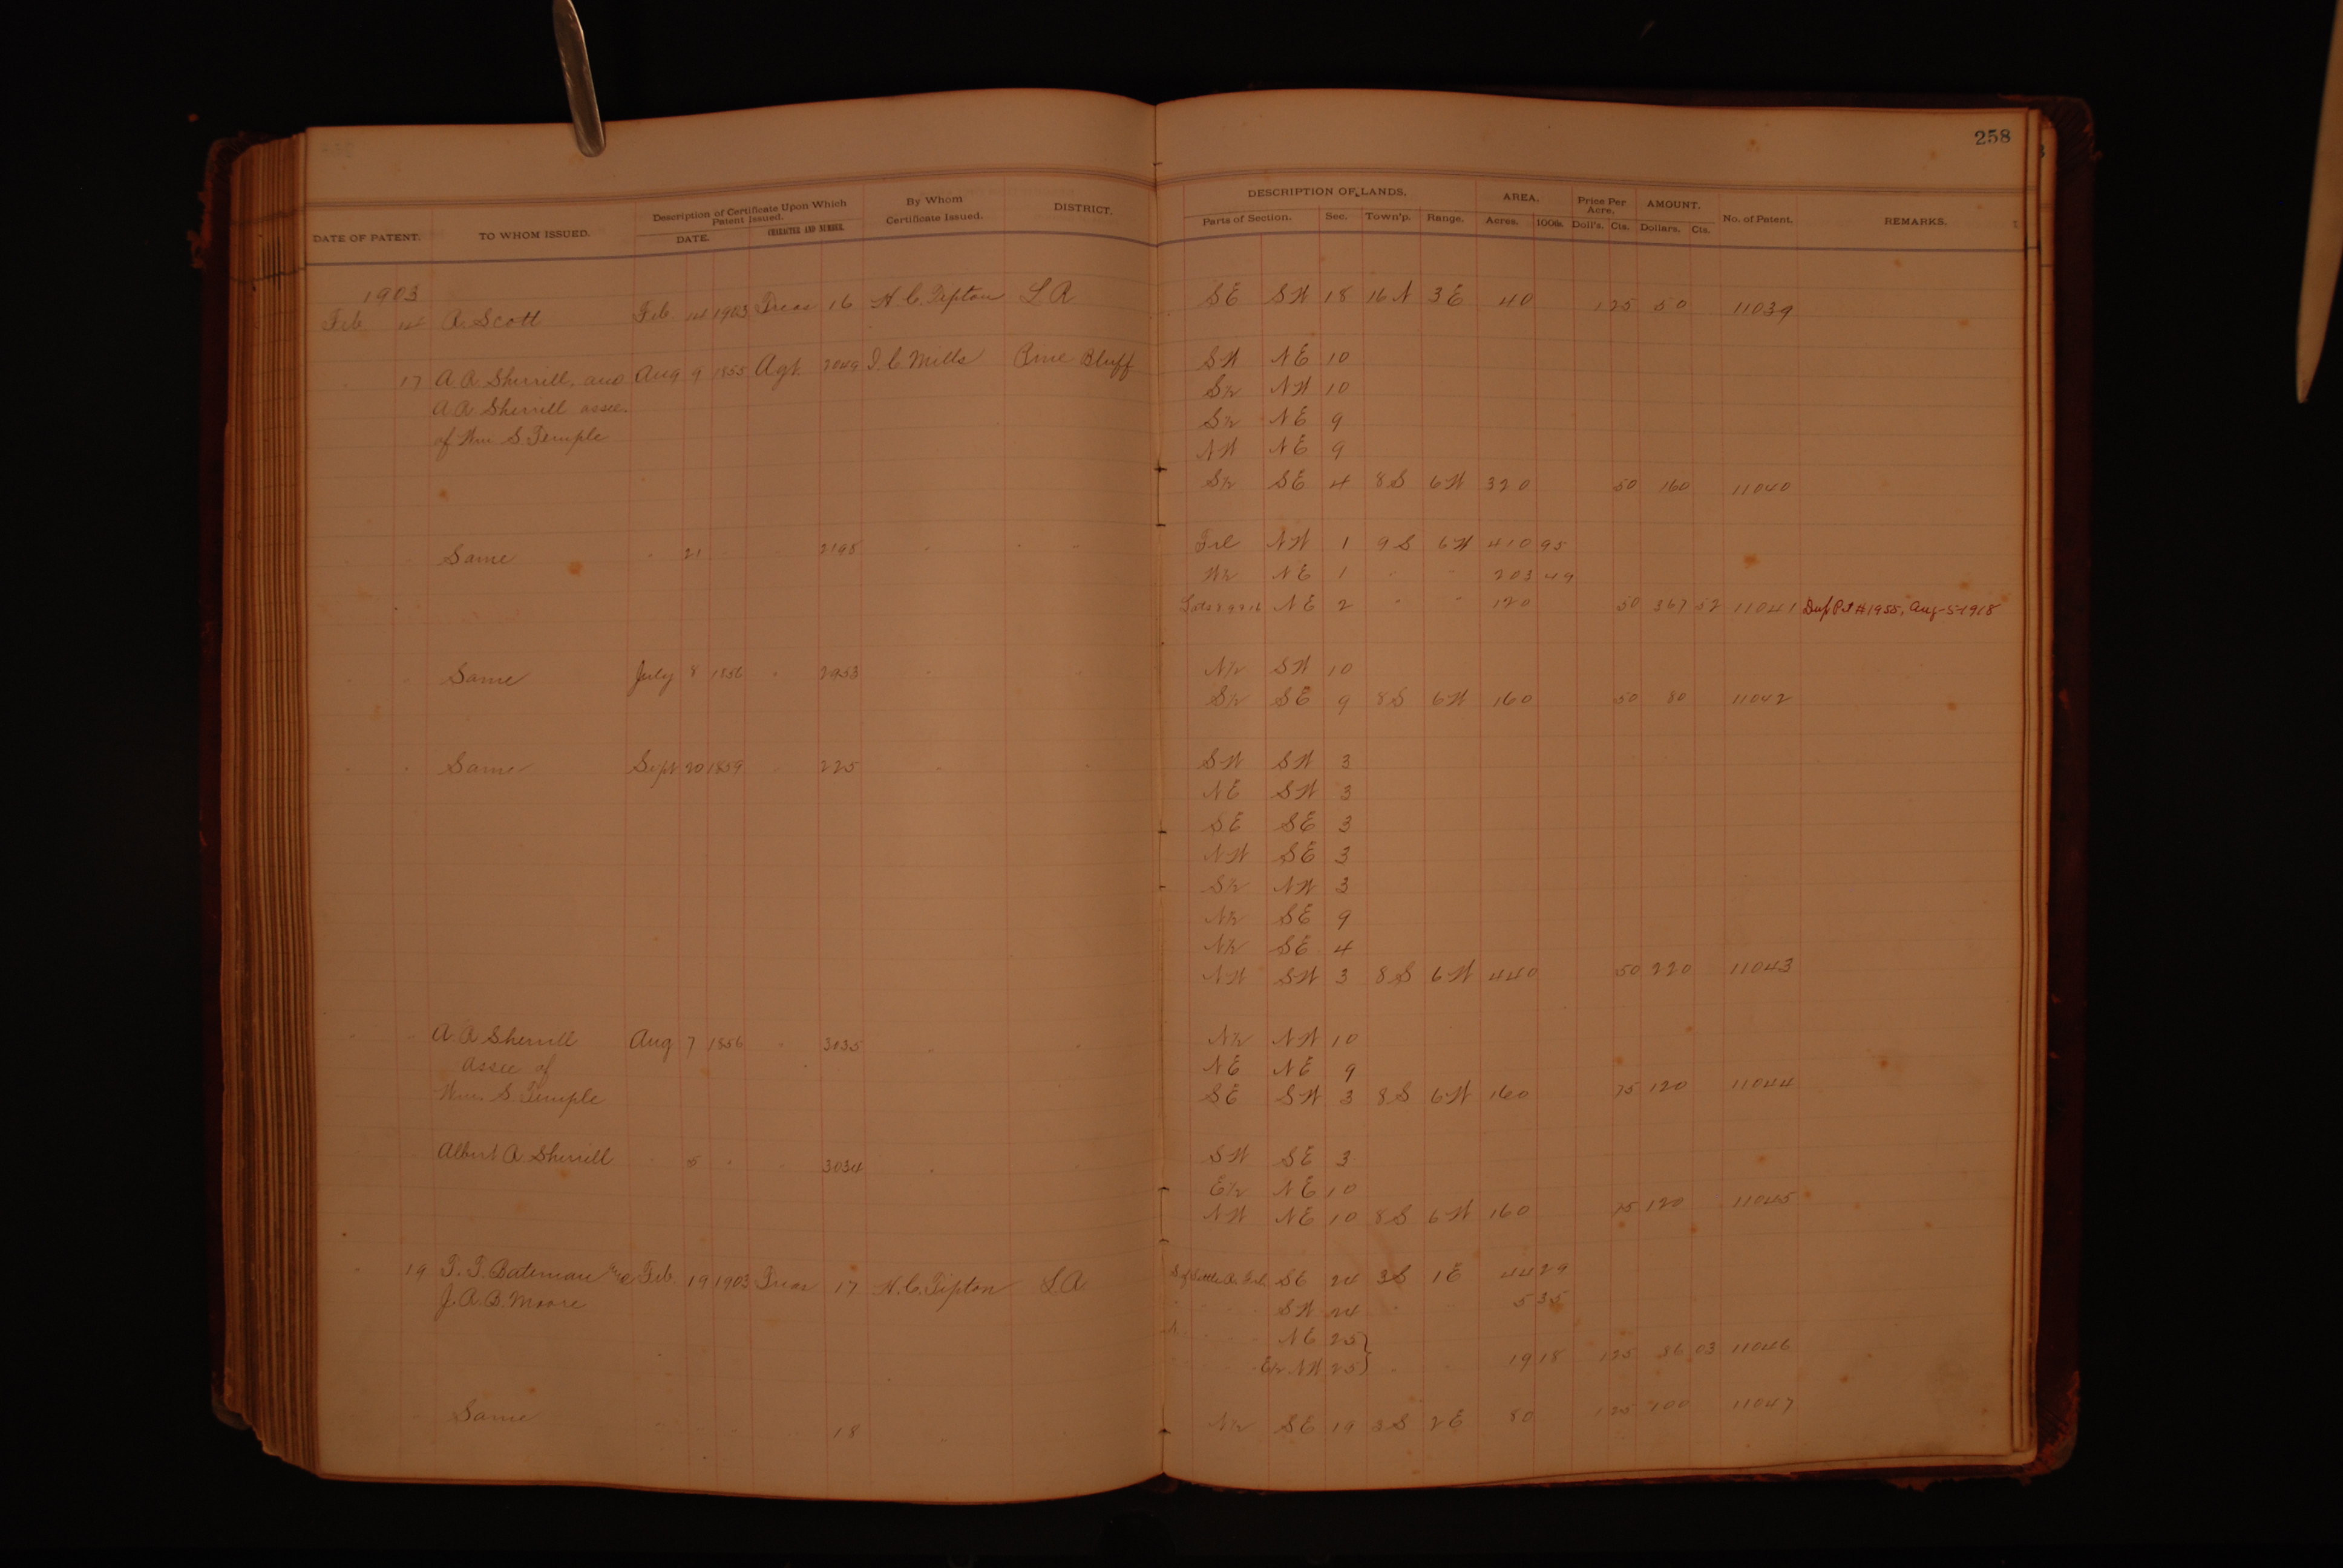 258
DATE OF PATENT. TO WHOM ISSUED. Description of Certificate Upon Which Patent Issued. DATE. CHARACTER AND NUMBER. By Whom Certificate Issued. DISTRICT. DESCRIPTION OF LANDS. Parts of Section. Sec. Town'p. Range. AREA. Acres. 100ths. Price Per Acre. Doll's. Cts. AMOUNT. Dollars. Cts. No. of Patent. REMARKS.
1903
Feb. 14 A. Scott Feb. 14 1903 Treas 16 H. C. Tipton L R SE SW 18 16 N 3 E 40 1 25 50 11039
" 17 A. A. Sherrill, and Aug 9 1855 Agt. 2049 I. C. Mills Pine Bluff SW NE 10
A A Sherrill assee. S½ NW 10
of Wm S. Temple S½ NE 9
NW NE 9
S½ SE 4 8 S 6 W 320 50 160 11040
Same " 21 2198 " " " Frl NW 1 9 S 6 W 410 95
W½ NE 1 " " 203 49
NE 2 " " 120 50 367 52 11041 Dup Pat #1955, Aug-5-1918
" " Same July 8 1856 " 2953 " " N½ SW 10
S½ SE 9 8 S 6 W 160 50 80 11042
" " Same Sept 20 1859 " 225 " " SW SW 3
NE SW 3
SE SE 3
NW SE 3
S½ NW 3
N½ SE 9
N½ SE 4
NW SW 3 8 S 6 W 440 50 220 11043
" " A. A Sherrill Aug 7 1856 " 3035 " " N½ NW 10
assee of NE NE 9
Wm. S. Temple SE SW 3 8 S 6 W 160 75 120 11044
Albert A Sherrill " 5 " 3034 " SW SE 3
E½ NE 10
NW NE 10 8 S 6 W 160 75 120 11045
" 19 T. T. Bateman and Feb. 19 1903 Treas 17 H. C. Tipton L.R. S of Little R. Frl. SE 24 3 S 1 E 44 29
J. A. B. Moore SW 24 " 5 35
N NE 25 }
E½ NW 25 } " " 19 18 1 25 86 03 11046
Same " " " 18 " N½ SE 19 3 S 2 E 80 1 25 100 11047